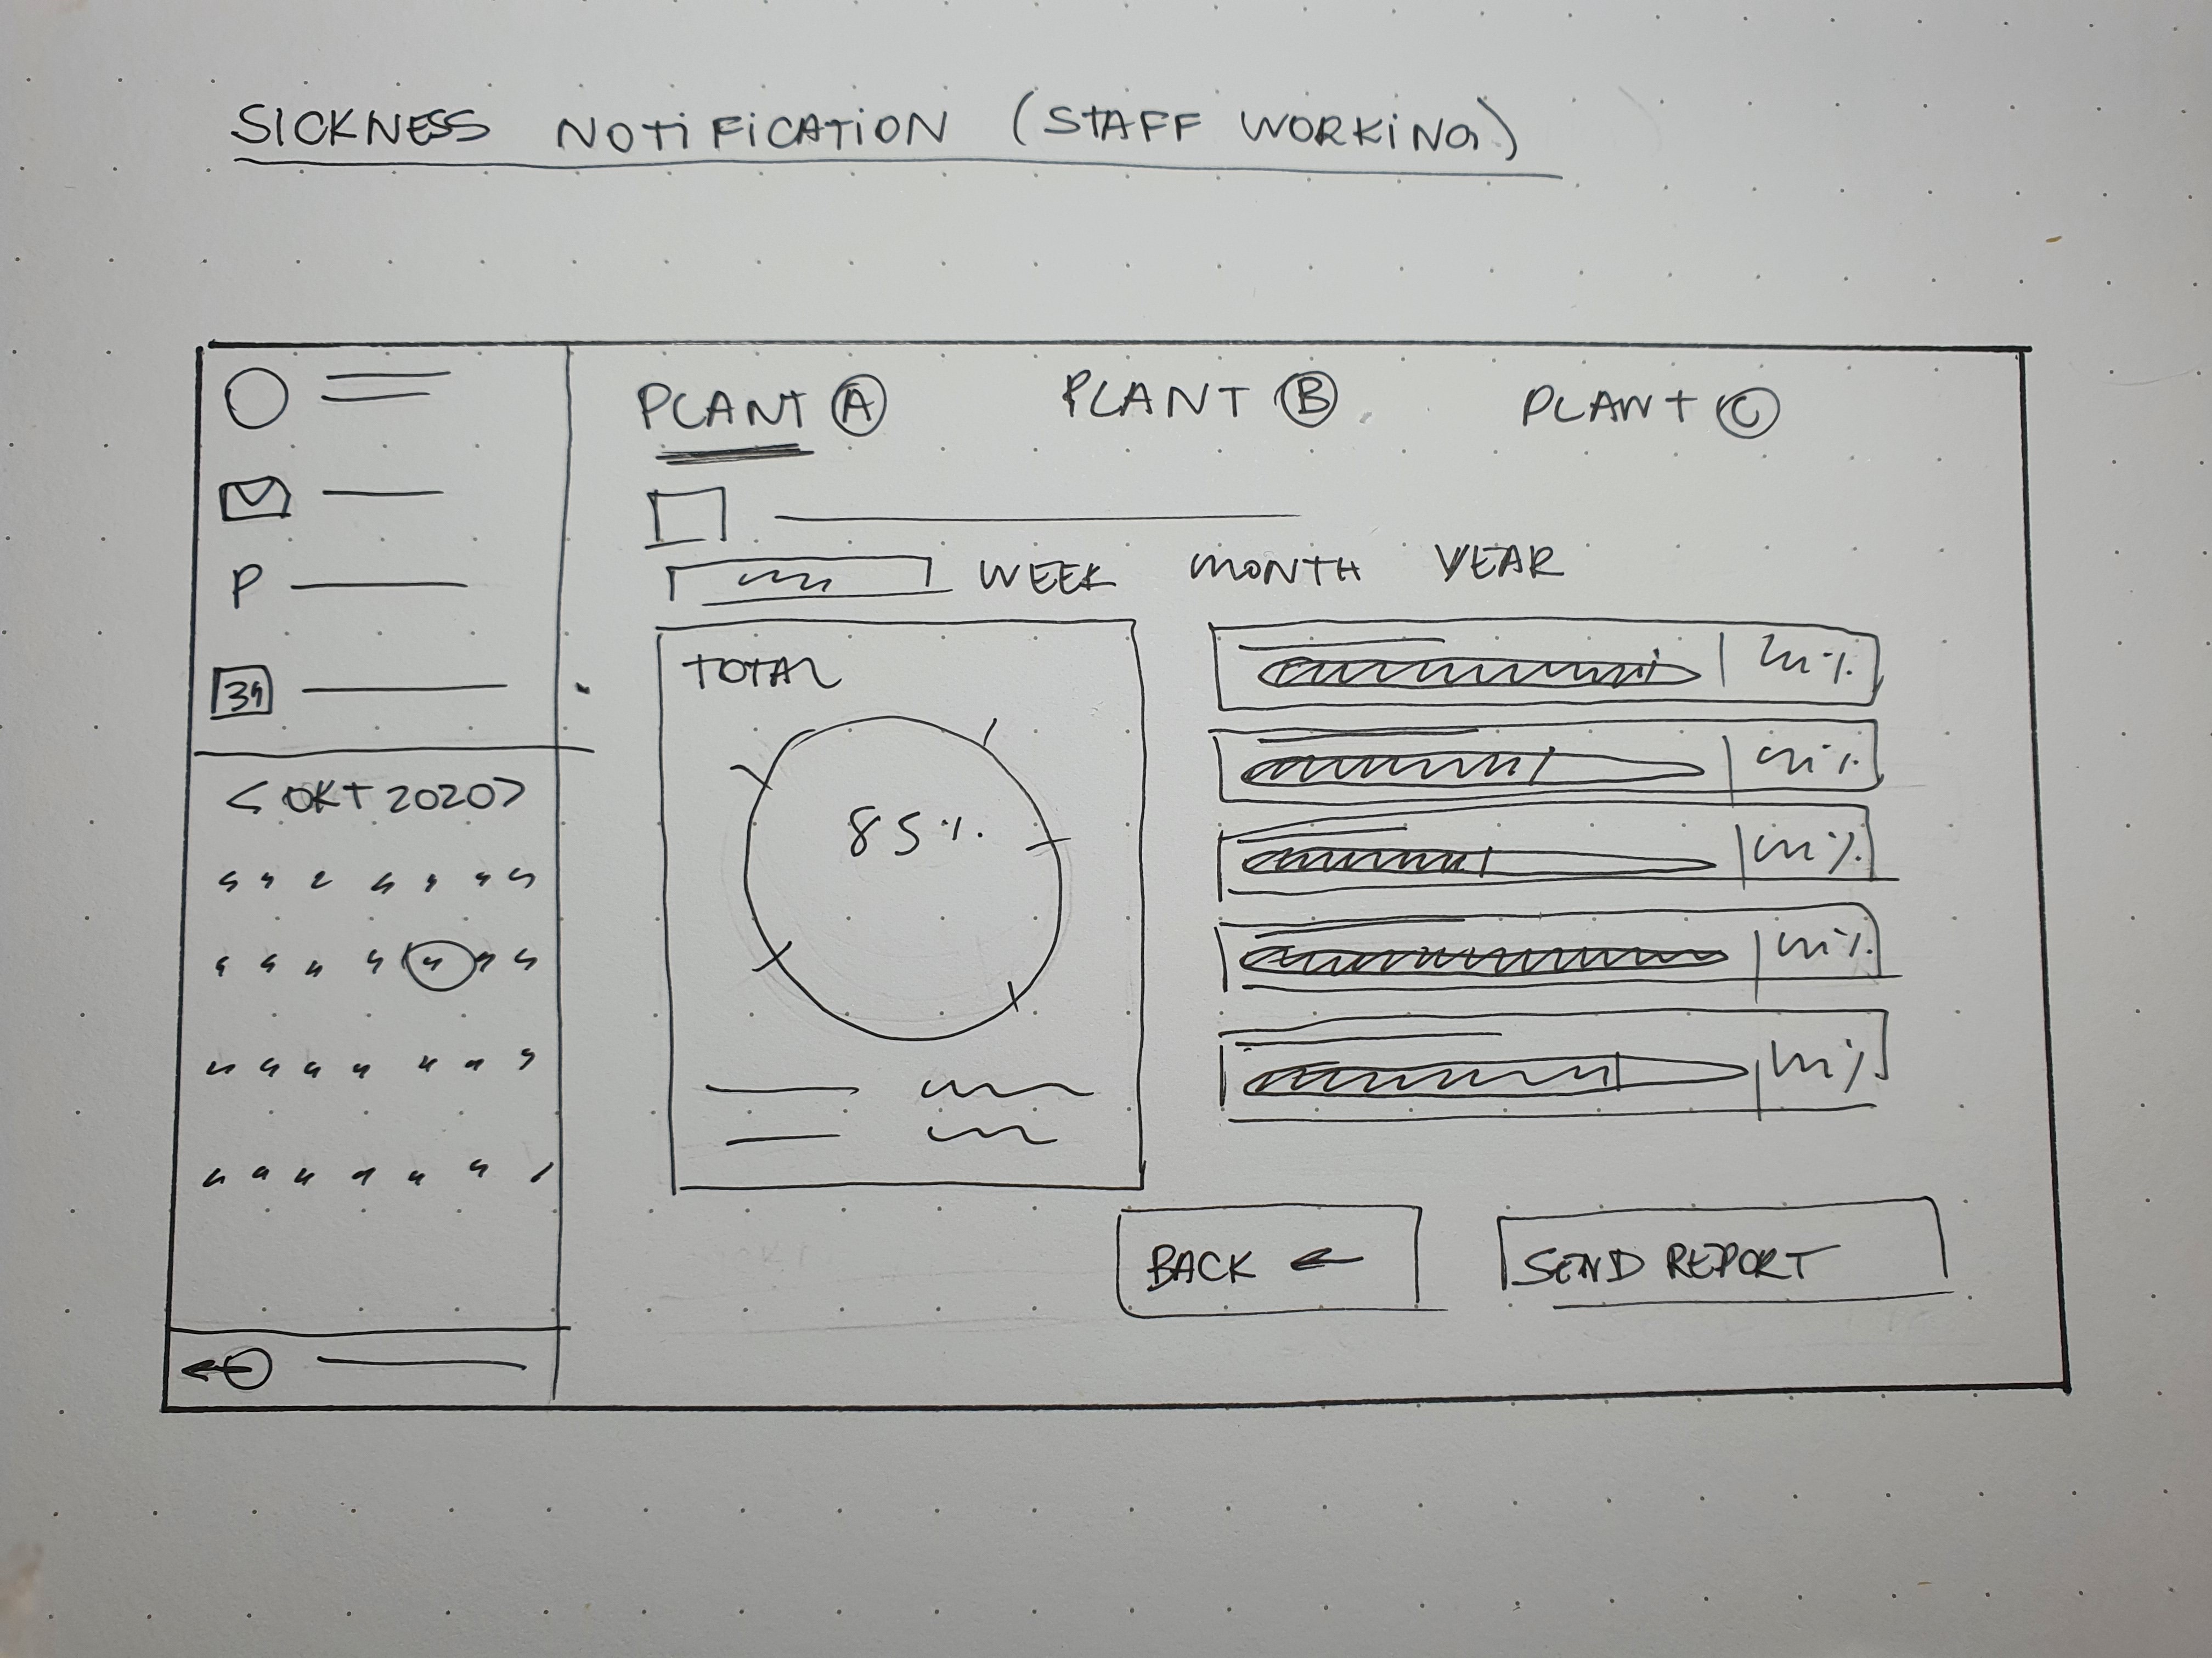 SICKNESS NOTIFICATION (STAFF WORKING)
PLANT A PLANT B PLANT C
P
WEEK MONTH YEAR
TOTAL
< OKT 2020 >
85%
%
%
%
%
%
BACK ←
SEND REPORT